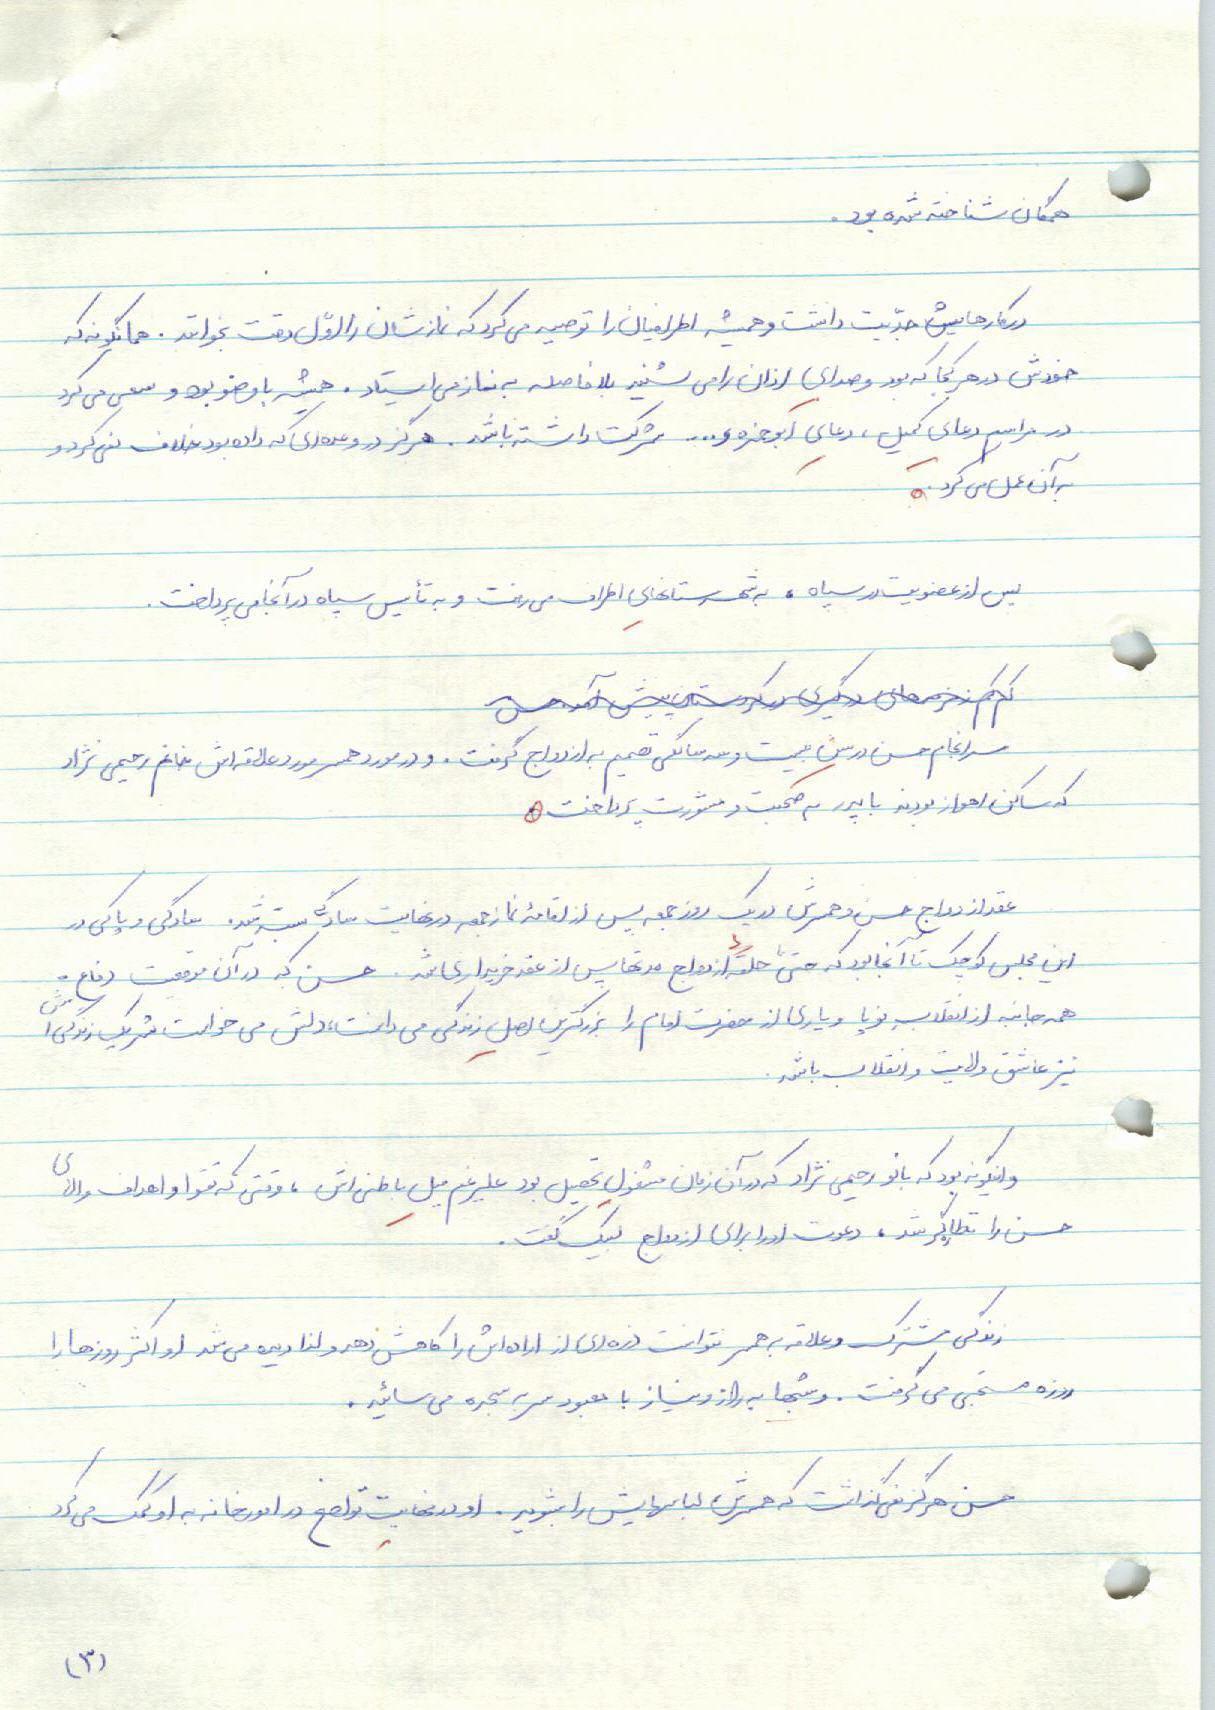 همگان شناخته شده بود.
در کارهایش جدّیت داشت و همیشه اطرافیان را توصیه می‌کرد که نمازشان را اوّل وقت بخوانند. همانگونه که
خودش در هر کجا که بود وصدای اذان را می شنید بلافاصله به نماز می ایستاد. همیشه با وضو بود و سعی می کرد
در مراسم دعای کمیل، دعایِ ابوحمزه و... شرکت داشته باشد. هرگز در وعده‌ای که داده بود خلاف نمی کرد و
به آن عمل می کرد.
پس از عضویت در سپاه، به شهرستانهایِ اطراف می رفت و به تأسیس سپاه در آنجا می پرداخت.
کم کم زخم‌های درگیری در کردستان پیش آمد حسن
سرانجام حسن در سن بیست و سه سالگی تصمیم به ازدواج گرفت. و در مورد همسر مورد علاقه اش خانم رحیمی نژاد
که ساکن اهواز بودند با پدر به صحبت و مشورت پرداخت.
عقد ازدواج حسن و همسرش در یک روز جمعه پس از اقامۀ نماز جمعه در نهایت سادگی بسته شد. سادگی و پاکی در
این مجلس کوچک تا آنجا بود که حتی حلقۀ ازدواج مدتها پس از عقد خریداری شد. حسن که در آن موقعیت دفاع
همه جانبه از انقلاب نوپا و یاری از حضرت امام را بزرگترین اصلِ زندگی می دانست، دلش می خواست شریک زندگی اش
نیز عاشق ولایت و انقلاب باشد.
و اینگونه بود که بانو رحیمی نژاد که در آن زمان مشغول تحصیل بود علیرغم میلِ باطنی اش، وقتی که تقوا و اهداف والای
حسن را نظاره‌گر شد، دعوت او را برای ازدواج لبیک گفت.
زندگی مشترک و علاقه به همسر نتوانست ذره‌ای از اراده‌اش را کاهش دهد و لذا دیده می شد او اکثر روزها را
روزه مستحبی می گرفت. و شبها به راز و نیاز با معبود سر به سجده می سائید.
حسن هرگز نمی گذاشت که همسرش لباسهایش را بشوید. او در نهایتِ تواضع در امور خانه به او کمک می کرد
(۳)